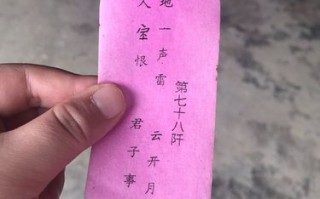 第七十八阡
地一声雷 云开月
人室恨 君子事